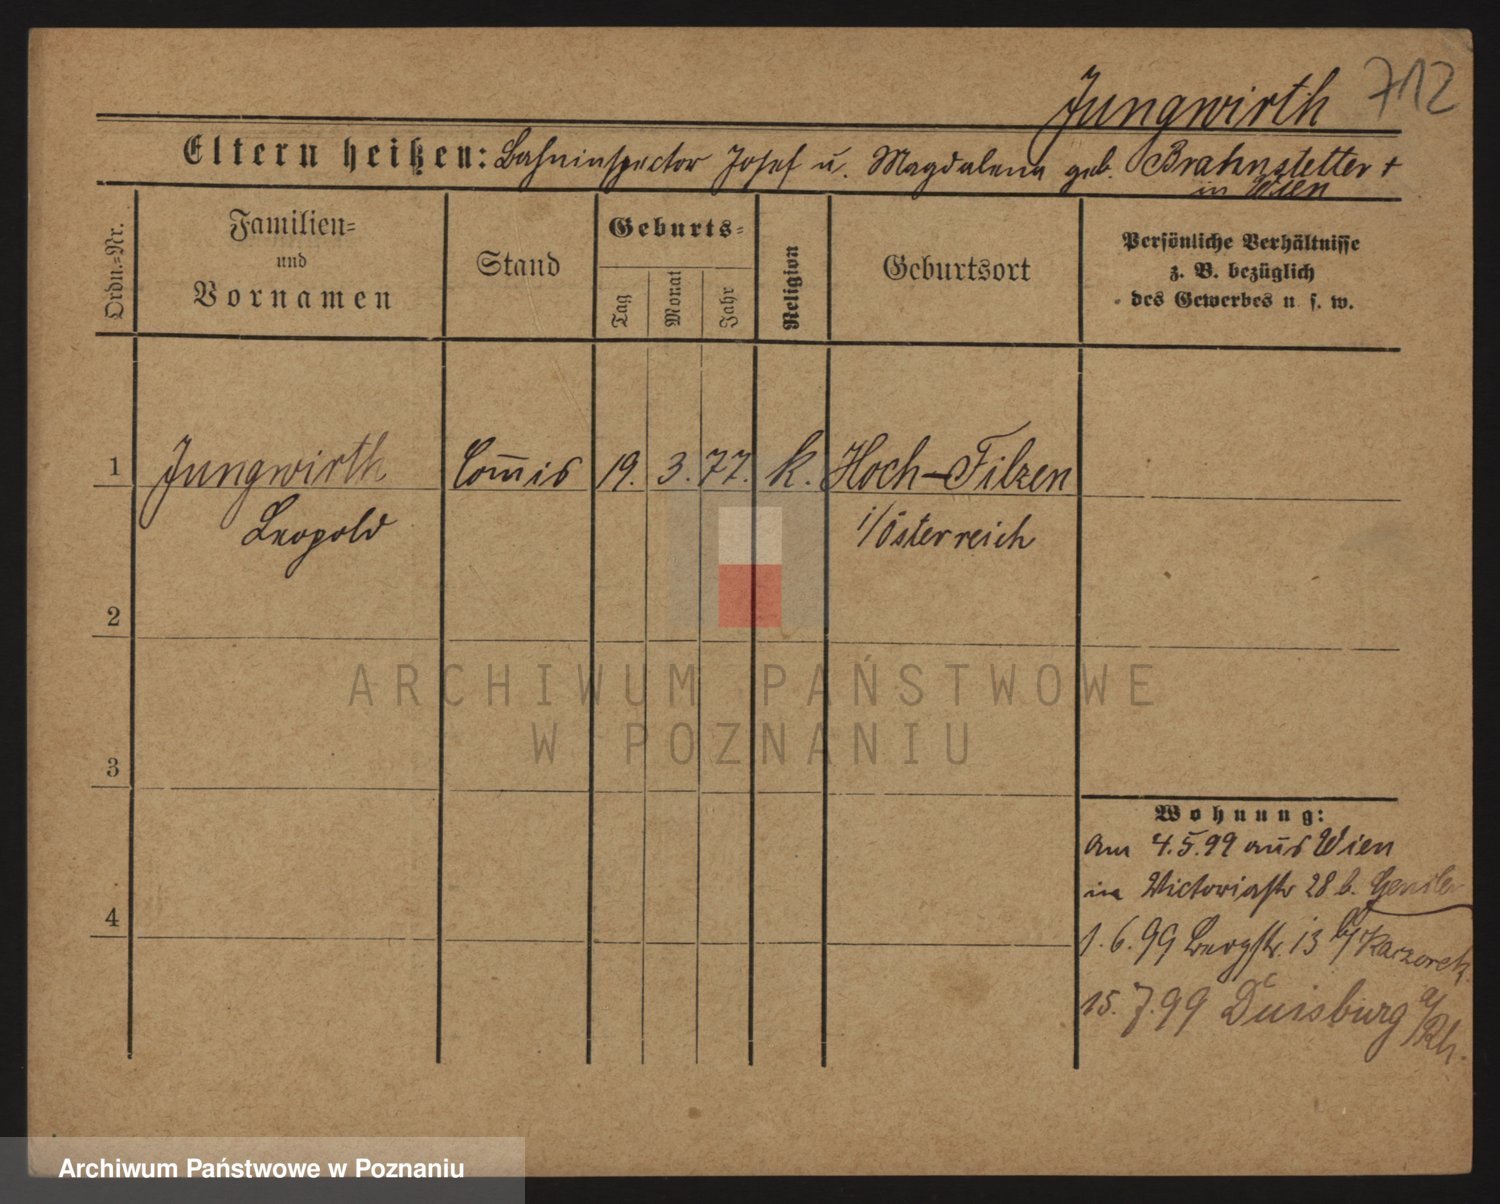 Jungwirth 712
Eltern heißen: Bahninspector Josef u. Magdalena geb. Brahnstetter +
in Wien
Ordn.-Nr.
Familien-
und
Vornamen
Stand
Geburts-
Tag
Monat
Jahr
Religion
Geburtsort
Persönliche Verhältnisse
z. B. bezüglich
des Gewerbes u. s. w.
1 Jungwirth Com̄is 19. 3. 77. k. Hoch-Filzen
Leopold i/Österreich
2
ARCHIWUM PAŃSTWOWE
W POZNANIU
3
Wohnung:
am 4.5.99 aus Wien
in Victoriastr 28 b.
4
1.6.99 Bergstr. 13 b/ Kaczorek
15.7.99 Duisburg a/Rh.
Archiwum Państwowe w Poznaniu